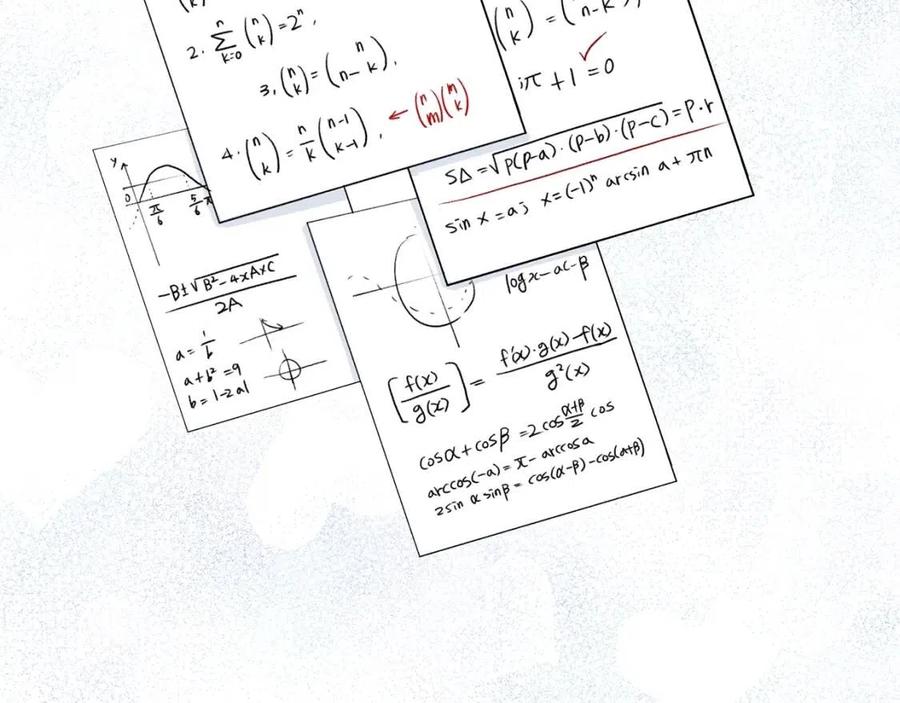 k)
2. \sum_{k=0}^{n} \binom{n}{k} = 2^n,
3. \binom{n}{k} = \binom{n}{n-k}.
4. \binom{n}{k} = \frac{n}{k} \binom{n-1}{k-1}. ← \binom{n}{m} \binom{m}{k}
\binom{n}{k} = ( n-k ),
iπ + 1 = 0
SΔ = \sqrt{p(p-a) \cdot (p-b) \cdot (p-c)} = p \cdot r
sin x = a; x = (-1)^n arcsin a + πn
y
0
\frac{π}{6} \frac{5}{6}π
\frac{-B ± \sqrt{B^2 - 4xAxC}}{2A}
a = \frac{1}{b}
a + b^2 = 9
b = 1 - 2a
log x - ac - β
[\frac{f(x)}{g(x)}] = \frac{f'(x) \cdot g(x) - f(x)}{g^2(x)}
cosα + cosβ = 2cos\frac{α+β}{2} cos
arccos(-a) = π - arccosa
2sin α sinβ = cos(α-β) - cos(α+β)